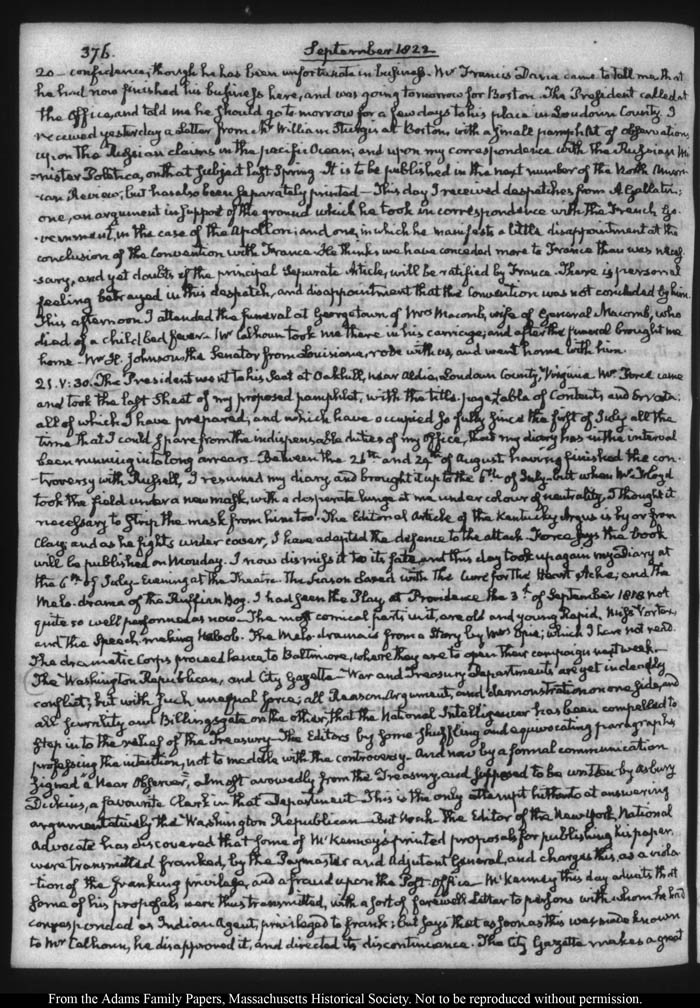 376.
September 1822.
20 — confidence, though he has been unfortunate in business. Mr Francis Dana came to tell me that
he had now finished his business here, and was going tomorrow for Boston. The President called at
the Office, and told me he should go tomorrow for a few days to his place in Loudoun County. I
received yesterday a Letter from Mr William Sturgis at Boston, with a small pamphlet of observations
upon the Russian claims in the pacific Ocean; and upon my correspondence with the Russian Mi-
-nister Politica, on that subject last Spring. It is to be published in the next number of the North Ameri-
can Review; but has also been separately printed — This day I received despatches from A. Gallatin;
one, an argument in support of the ground which he took in correspondence with the French Go-
-vernment, in the case of the Apollon; and one, in which he manifests a little disappointment at the
conclusion of the Convention with France. He thinks we have conceded more to France than was neces-
sary, and yet doubts if the principal Separate Article, will be ratified by France. There is personal
feeling betrayed in this despatch, and disappointment that the Convention was not concluded by him.
This afternoon I attended the funeral at Georgetown of Mrs Macomb, wife of General Macomb, who
died of a child bed fever. Mr Calhoun took me there in his carriage; and after the funeral brought me
home — Mr H. Johnson, the Senator from Louisiana, rode with us, and went home with him.
21. V:30. The President went to his Seat at Oakhill, near Aldie, Loudoun County, Virginia. Mr Force came
and took the last Sheet of my proposed pamphlet, with the title page, table of Contents, and Errata;
all of which I have prepared, and which have occupied so fully since the first of July all the
time that I could spare from the indispensable duties of my office, that my diary has in the interval
been running into long arrears. Between the 26th and 29th of August having finished the con-
-troversy with Russell, I resumed my diary, and brought it up to the 6th of July — but when Mr Floyd
took the field under a new mask, with a desperate lunge at me under colour of neutrality, I thought it
necessary to strip the mask from him too. The Editorial Article of the Kentucky Argus is by or from
Clay; and as he fights under cover, I have adapted the defence to the attack. Force says the book
will be published on Monday. I now dismiss it to its fate, and this day took up again my diary at
the 6th of July. Evening at the Theatre. The Season closed with The Cure for the Heart Ache, and the
Melo-drama of the Russian Boy. I had seen the Play, at Providence the 3d of September 1818 not
quite so well performed as now — The most comical parts in it, are old and young Rapid, Miss Vortex,
and the Speech-making Nabob. The Melo-drama is from a Story by Mrs Opie; which I have not read.
The dramatic Corps proceed hence to Baltimore, where they are to open their campaign next week —
The Washington Republican, and City Gazette — War and Treasury Departments are yet in deadly
conflict; but with such unequal force; all Reason, Argument, and demonstration on one side, and
all scurrility and Billingsgate on the other; that the National Intelligencer has been compelled to
step in to the relief of the Treasury — The Editors by some shuffling and equivocating paragraphs
professing the intention, not to meddle with the controversy — And now by a formal communication
signed "a Near Observer," almost avowedly from the Treasury, and supposed to be written by Asbury
Dickins, a favourite Clerk in that Department. This is the only attempt hitherto at answering
argumentatively the Washington Republican — But Noah the Editor of the New York, National
Advocate has discovered that some of McKenney's printed proposals for publishing his paper,
were transmitted franked, by the Paymaster and Adjutant General, and charges this, as a viola-
-tion of the franking privilege, and a fraud upon the Post-Office — McKenney this day admits that
some of his proposals were thus transmitted, with a sort of farewell Letter to persons with whom he had
corresponded as Indian Agent, privileged to frank; but says that as soon as this was made known
to Mr Calhoun, he disapproved it, and directed its discontinuance. The City Gazette makes a great
From the Adams Family Papers, Massachusetts Historical Society. Not to be reproduced without permission.